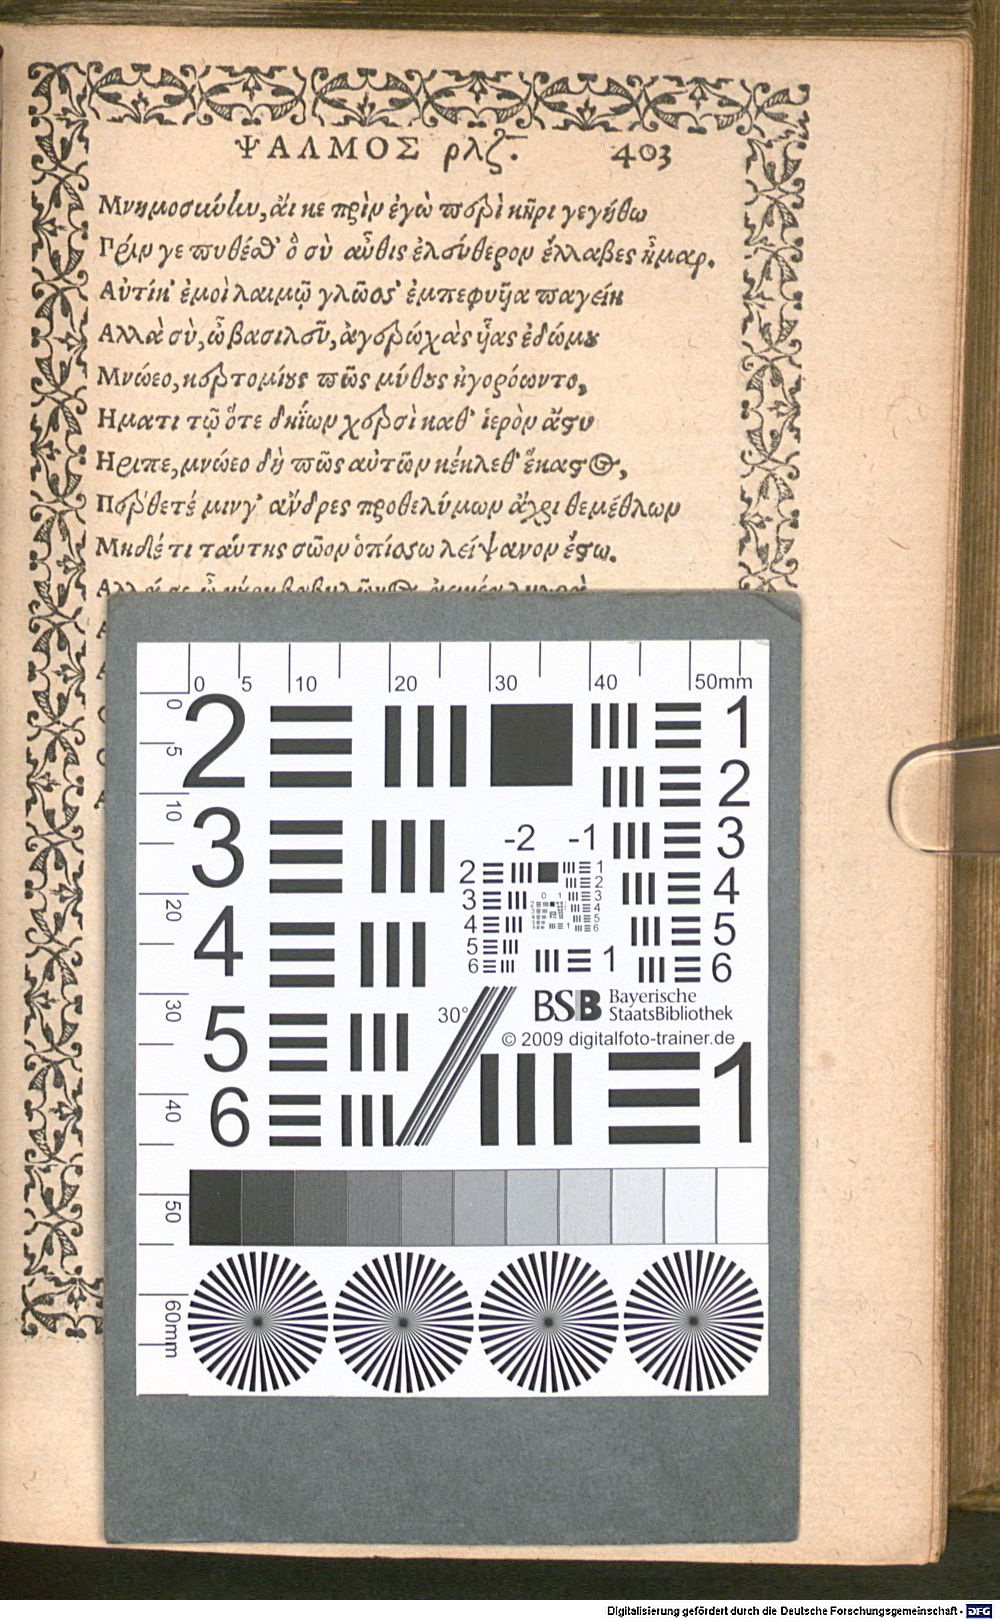 ΨΑΛΜΟΣ ρλζ. 403
Μνημοσύνην, ἄι κε πρὶν ἐγὼ περὶ κῆρι γεγήθω
Πρίν γε πυθέσθ' ὃ σὺ αὖθις ἐλεύθερον ἔλλαβες ἦμαρ.
Αὐτίκ' ἐμοὶ λαιμῷ γλῶσσ' ἐμπεφυῖα παγείη
Αλλὰ σὺ, ὦ βασιλεῦ, ἀγερώχὰς ἧας ἐδώμου
Μνώεο, κερτομίους πῶς μύθους ἠγορόωντο,
Ηματι τῷ ὅτε δηΐων χερσὶ καθ' ἱερὸν ἄστυ
Ηριπε, μνώεο δὴ πῶς αὐτῶν κέκλεθ' ἕκαστος,
Πέρθετέ μιν γ' ἄνδρες προθελύμνων ἄχρι θεμέθλων
Μηδέ τι ταύτης σῶον ὀπίσσω λείψανον ἔστω.
Αλλά σε
0 5 10 20 30 40 50mm
0 5 10 20 30 40 50 60mm
2 1
2
3 3
-2 -1
4 4
5 5
6 6
2 1
2
3 3
4 4
5 5
6 6
1
0 1
30°
BSB Bayerische
StaatsBibliothek
© 2009 digitalfoto-trainer.de
1
Digitalisierung gefördert durch die Deutsche Forschungsgemeinschaft - DFG